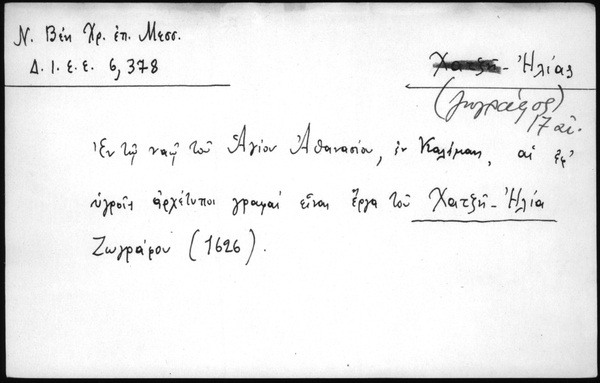 Ν. Βέη Χρ. ἐπ. Μεσσ.
Δ. Ι. Ε. Ε. 6, 378
Χατζῆ - Ἠλίας
(ζωγράφος)
17 αἰ.
Ἐν τῷ ναῷ τοῦ Ἁγίου Ἀθανασίου, ἐν Καλάμαις, αἱ ἐφ'
ὑγροῖς ἀρχέτυποι γραφαί εἶναι ἔργα τοῦ Χατζῆ - Ἠλία
Ζωγράφου (1626).